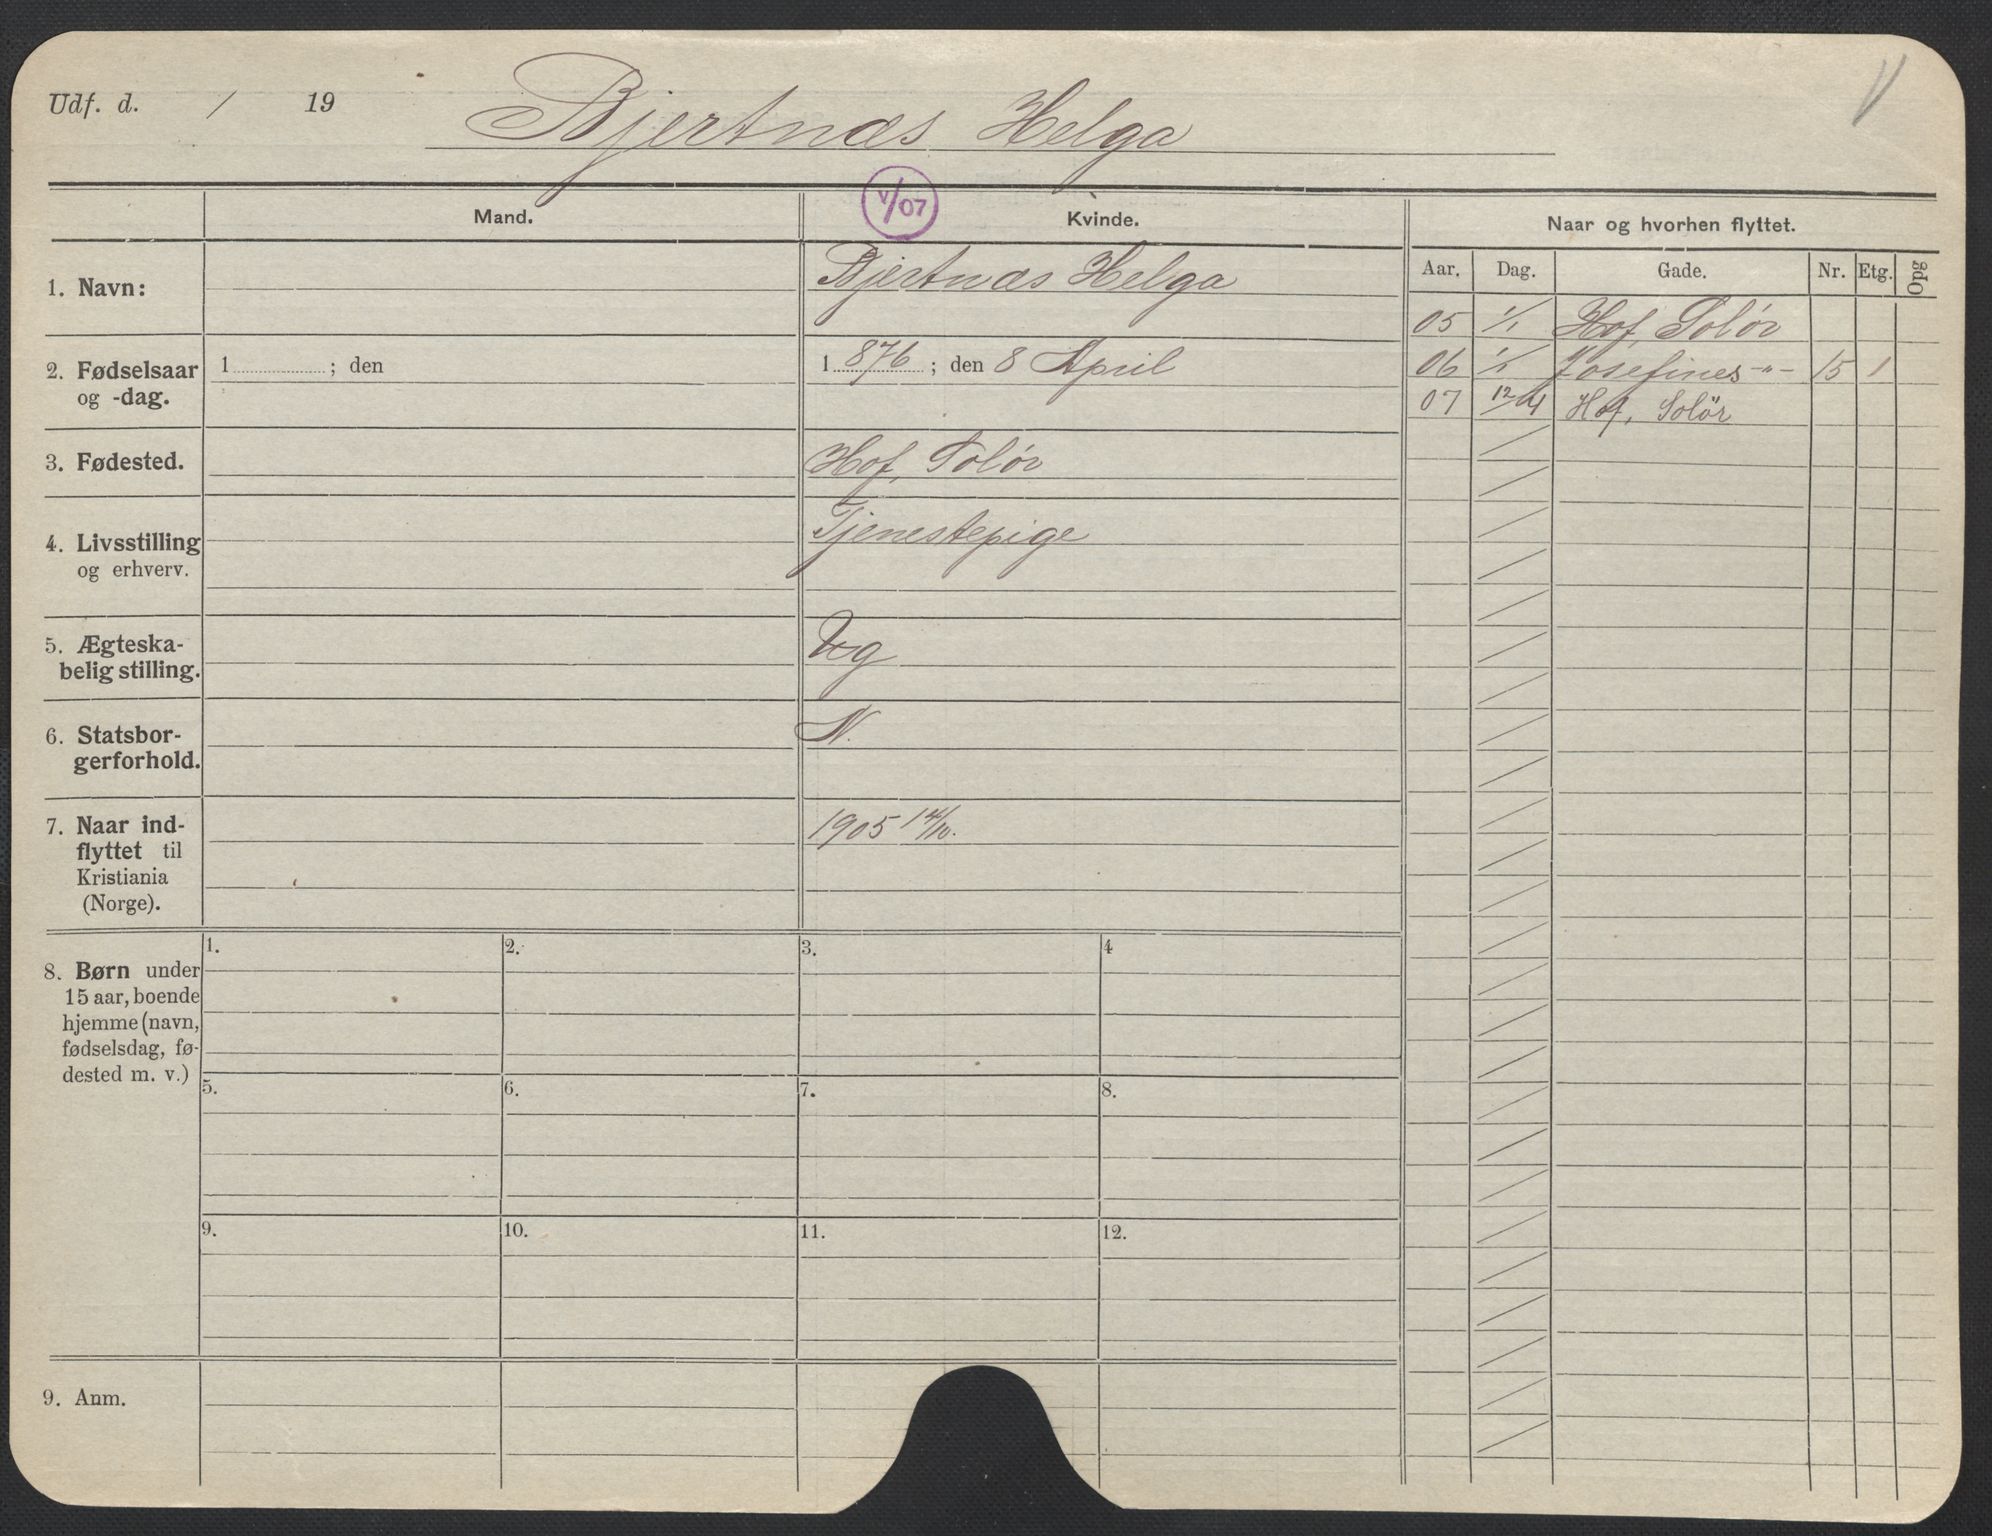 Udf. d. / 19
Bjertnæs Helga
V
V/07
Mand.
Kvinde.
Naar og hvorhen flyttet.
Aar. Dag. Gade. Nr. Etg. Opg
1. Navn:
Bjertnæs Helga
05 1/1 Hof, Solør
06 1/1 Josefines -"- 15 1
07 12/4 Hof, Solör
2. Fødselsaar
og -dag.
1 ; den
1 876 ; den 8 April
3. Fødested.
Hof, Solør
4. Livsstilling
og erhverv.
Tjenestepige
5. Ægteska-
belig stilling.
Ug
6. Statsbor-
gerforhold.
N.
7. Naar ind-
flyttet til
Kristiania
(Norge).
1905 14/10.
8. Børn under
15 aar, boende
hjemme (navn,
fødselsdag, fø-
dested m. v.)
1. 2. 3. 4
5. 6. 7. 8.
9. 10. 11. 12.
9. Anm.